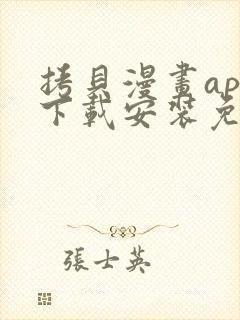 拷貝漫畫ap
下載安裝免
張士英